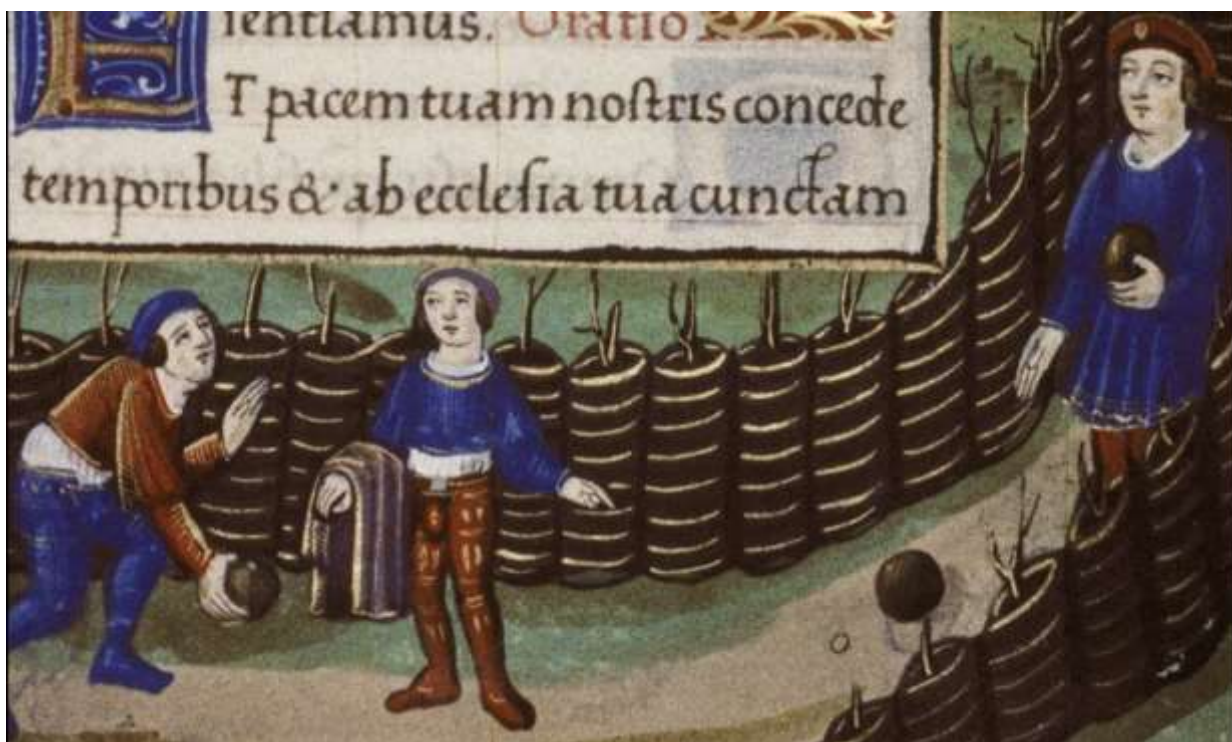 sentiamus. Oratio
ET pacem tuam noſtris concede
temporibus & ab eccleſia tua cunctam